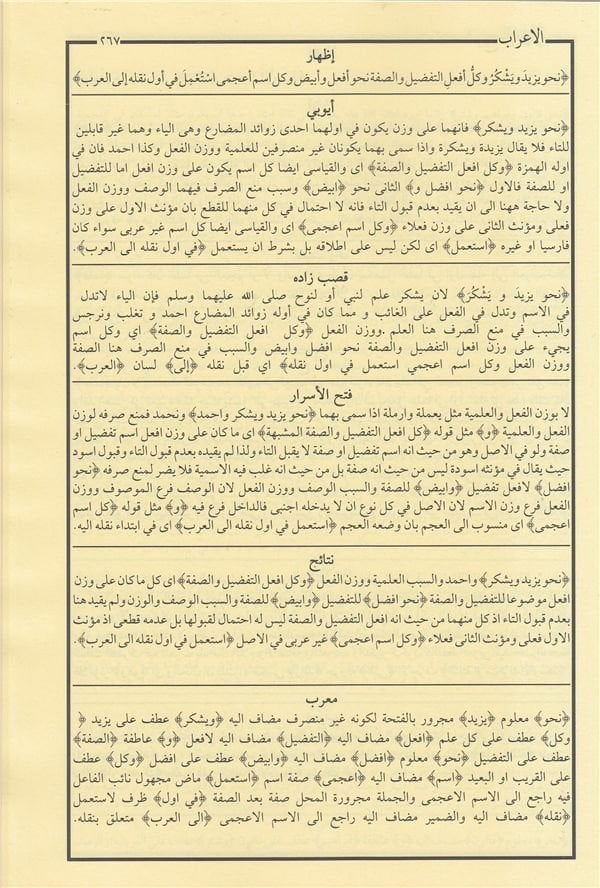 الاعراب
٢٦٧
إظهار
﴿نحو يزيد ويَشْكُرُ وكلُّ أفعلِ التفضيل والصفة نحو أفعل وأبيض وكل اسم أعجمى اسْتُعْمِلَ في أول نقله إلى العرب﴾
أيوبي
﴿نحو يزيد ويشكر﴾ فانهما على وزن يكون في اولهما احدى زوائد المضارع وهى الياء وهما غير قابلين
للتاء فلا يقال يزيدة ويشكرة واذا سمى بهما يكونان غير منصرفين للعلمية ووزن الفعل وكذا احمد فان في
اوله الهمزة ﴿وكل افعل التفضيل والصفة﴾ اى والقياسى ايضا كل اسم يكون على وزن افعل اما للتفضيل
او للصفة فالاول ﴿نحو افضل و﴾ الثانى نحو ﴿ابيض﴾ وسبب منع الصرف فيهما الوصف ووزن الفعل
ولا حاجة ههنا الى ان يقيد بعدم قبول التاء فانه لا احتمال في كل منهما للقطع بان مؤنث الاول على وزن
فعلى ومؤنث الثانى على وزن فعلاء ﴿وكل اسم اعجمى﴾ اى والقياسى ايضا كل اسم غير عربى سواء كان
فارسيا او غيره ﴿استعمل﴾ اى لكن ليس على اطلاقه بل بشرط ان يستعمل ﴿في اول نقله الى العرب﴾.
قصب زاده
﴿نحو يزيدَ و يَشْكُرَ﴾ لان يشكر علم لنبي أو لنوح صلى الله عليهما وسلم فإن الياء لاتدل
في الاسم وتدل في الفعل على الغائب و مما كان في أوله زوائد المضارع احمد و تغلب ونرجس
والسبب في منع الصرف هنا العلم .ووزن الفعل ﴿وكل افعل التفضيل والصفة﴾ اي وكل اسم
يجيء على وزن افعل التفضيل والصفة نحو افضل وابيض والسبب في منع الصرف هنا الصفة
ووزن الفعل وكل اسم اعجمي استعمل في اول نقله﴾ اي قبل نقله ﴿إلى﴾ لسان ﴿العرب﴾.
فتح الأسرار
لا بوزن الفعل والعلمية مثل يعملة وارملة اذا سمى بهما ﴿نحو يزيد ويشكر واحمد﴾ ونحمد فمنع صرفه لوزن
الفعل والعلمية ﴿و﴾ مثل قوله ﴿كل افعل التفضيل والصفة المشبهة﴾ اى ما كان على وزن افعل اسم تفضيل او
صفة ولو في الاصل وهو من حيث انه اسم تفضيل او صفة لا يقبل التاء ولذا لم يقيده بعدم قبول التاء وقبول اسود
حيث يقال في مؤنثه اسودة ليس من حيث انه صفة بل من حيث انه غلب فيه الاسمية فلا يضر لمنع صرفه ﴿نحو
افضل﴾ لافعل تفضيل ﴿وابيض﴾ للصفة والسبب الوصف ووزن الفعل لان الوصف فرع الموصوف ووزن
الفعل فرع وزن الاسم لان الاصل في كل نوع ان لا يدخله اجنبى فالداخل فرع فيه ﴿و﴾ مثل قوله ﴿كل اسم
اعجمى﴾ اى منسوب الى العجم بان وضعه العجم ﴿استعمل في اول نقله الى العرب﴾ اى في ابتداء نقله اليه.
نتائج
﴿نحو يزيد ويشكر﴾ واحمد والسبب العلمية ووزن الفعل ﴿وكل افعل التفضيل والصفة﴾ اى كل ما كان على وزن
افعل موضوعا للتفضيل والصفة ﴿نحو افضل﴾ للتفضيل ﴿وابيض﴾ للصفة والسبب الوصف والوزن ولم يقيد هنا
بعدم قبول التاء اذ كل منهما من حيث انه افعل التفضيل والصفة ليس له احتمال لقبولها بل عدمه قطعى اذ مؤنث
الاول فعلى ومؤنث الثانى فعلاء ﴿وكل اسم اعجمى﴾ غير عربى في الاصل ﴿استعمل في اول نقله الى العرب﴾.
معرب
﴿نحو﴾ معلوم ﴿يزيد﴾ مجرور بالفتحة لكونه غير منصرف مضاف اليه ﴿ويشكر﴾ عطف على يزيد ﴿
وكل﴾ عطف على كل علم ﴿افعل﴾ مضاف اليه ﴿التفضيل﴾ مضاف اليه لافعل ﴿و﴾ عاطفة ﴿الصفة﴾
عطف على التفضيل ﴿نحو﴾ معلوم ﴿افضل﴾ مضاف اليه ﴿وابيض﴾ عطف على افضل ﴿وكل﴾ عطف
على القريب او البعيد ﴿اسم﴾ مضاف اليه ﴿اعجمى﴾ صفة اسم ﴿استعمل﴾ ماض مجهول نائب الفاعل
فيه راجع الى الاسم الاعجمى والجملة مجرورة المحل صفة بعد الصفة ﴿في اول﴾ ظرف لاستعمل
﴿نقله﴾ مضاف اليه والضمير مضاف اليه راجع الى الاسم الاعجمى ﴿الى العرب﴾ متعلق بنقله.